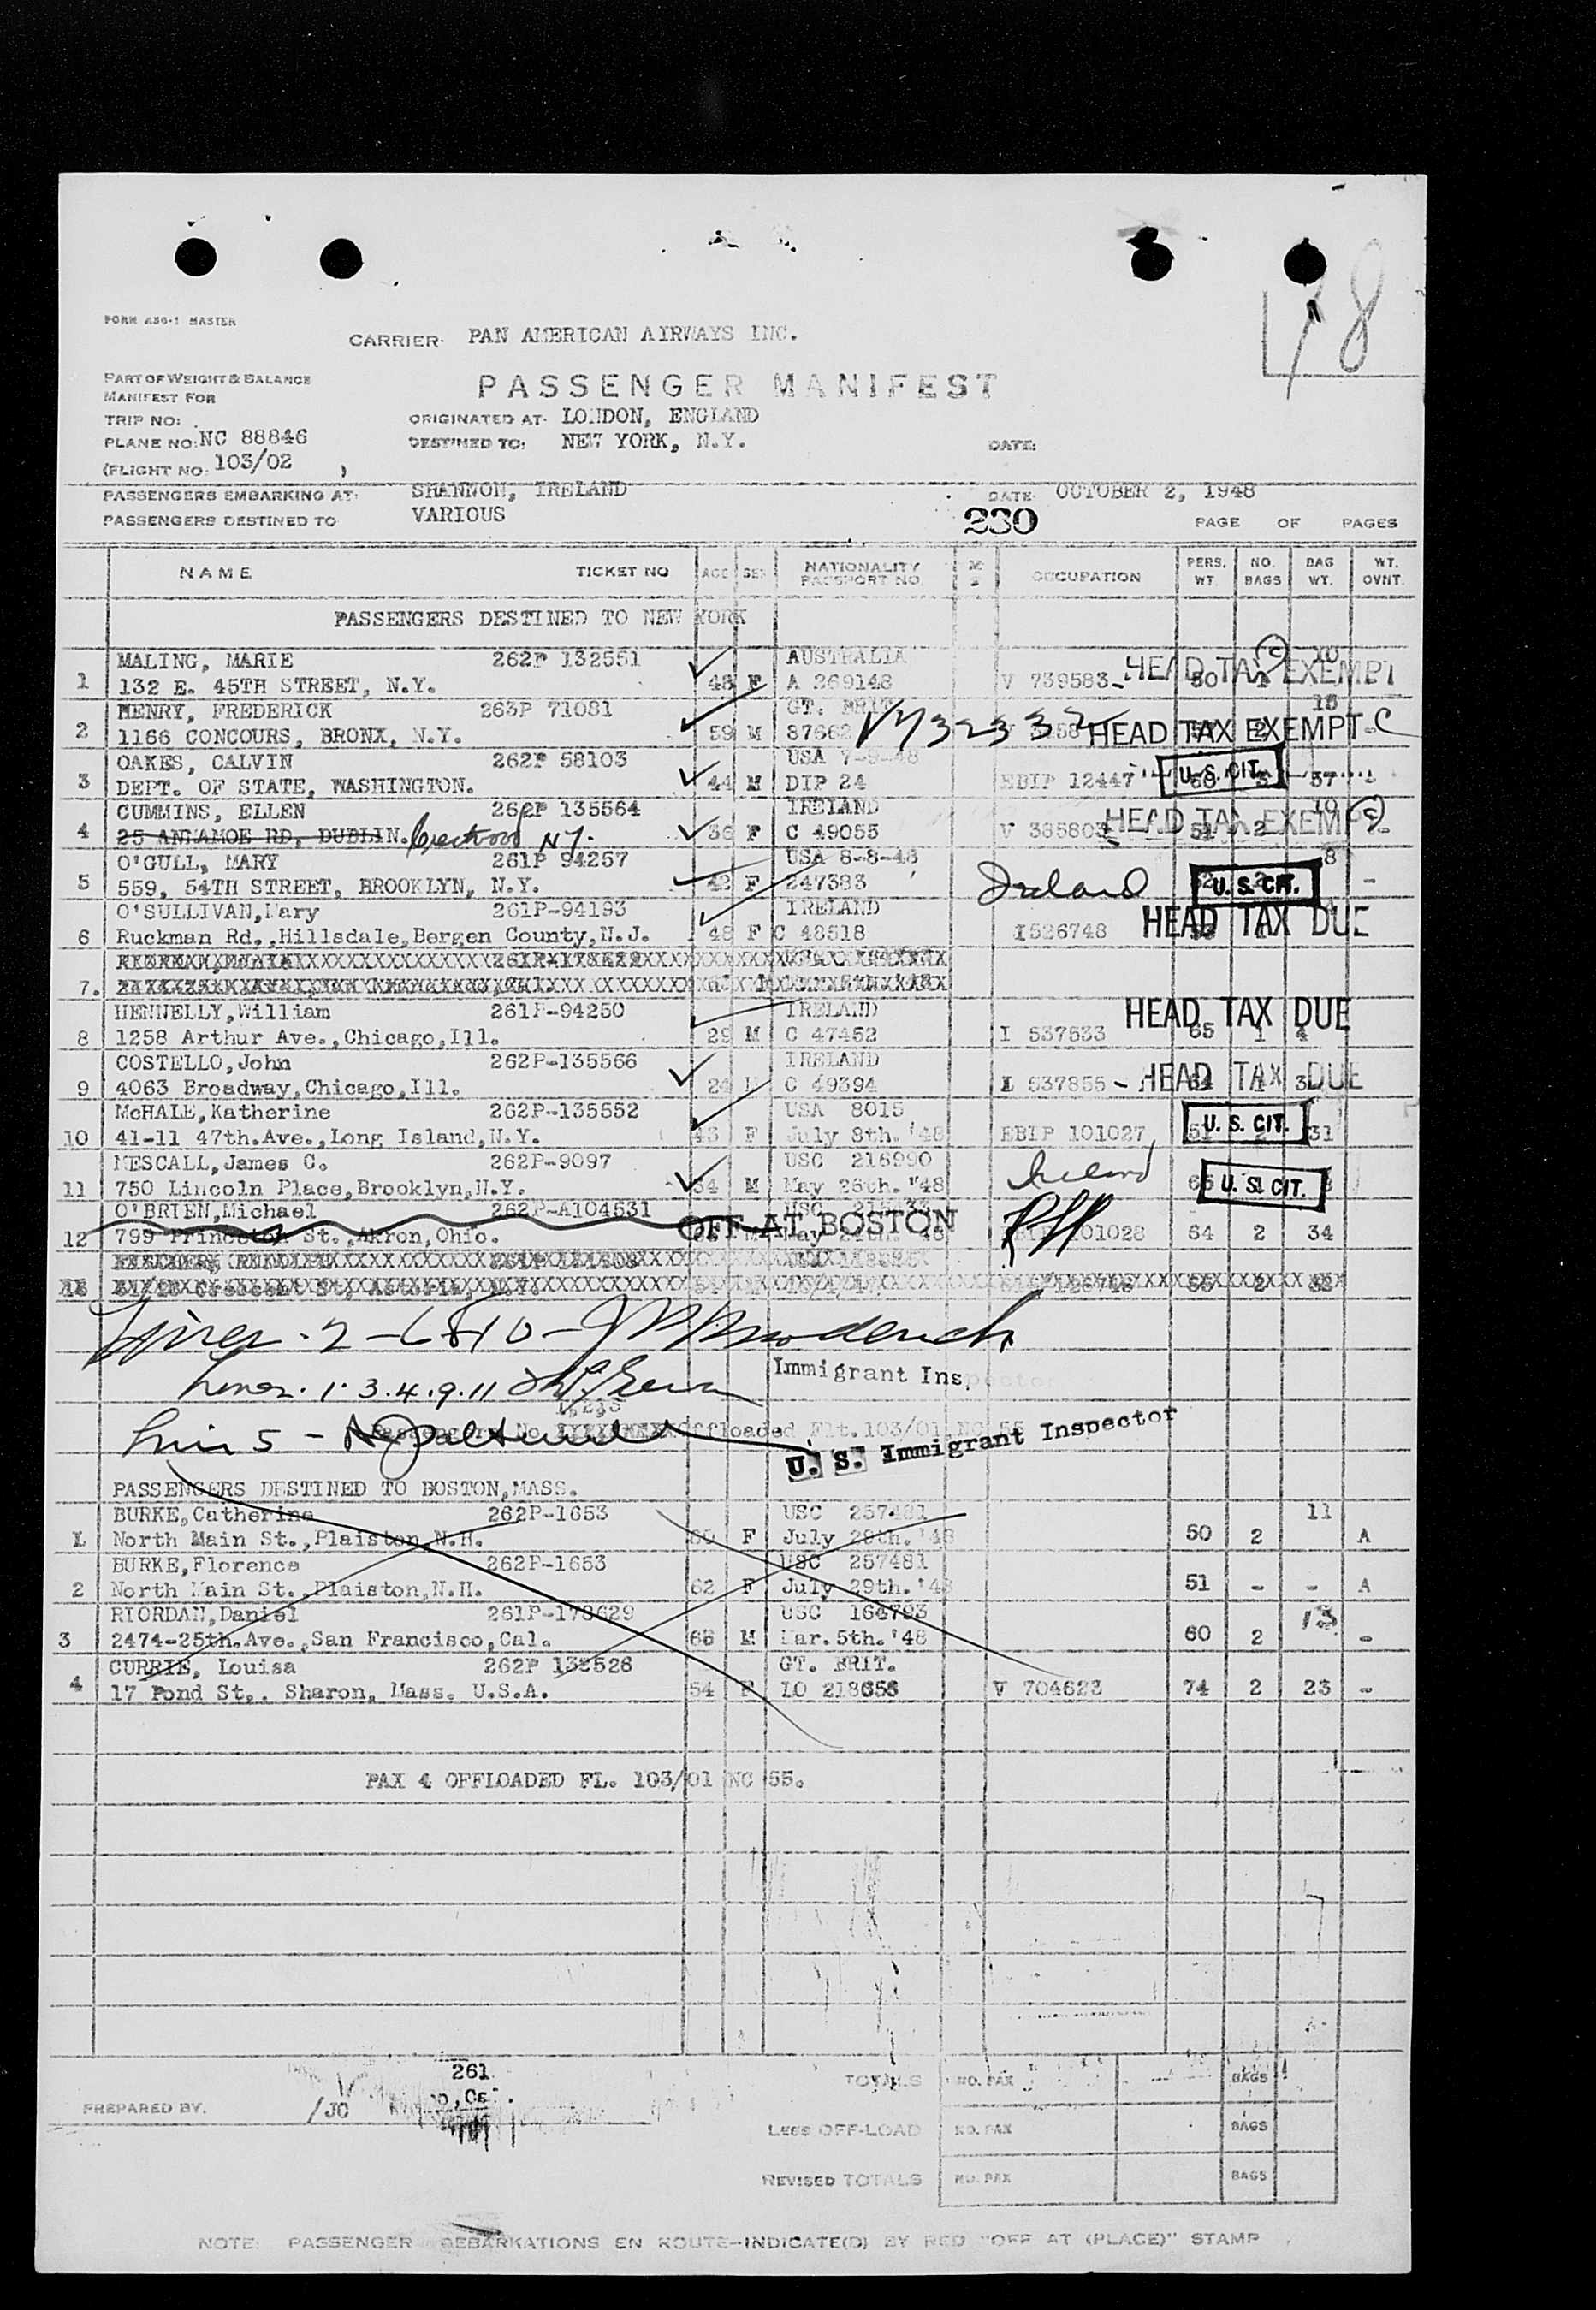 78
FORM A36-1 MASTER
CARRIER: PAN AMERICAN AIRWAYS INC.
PART OF WEIGHT & BALANCE
MANIFEST FOR
PASSENGER MANIFEST
TRIP NO:
ORIGINATED AT: LONDON, ENGLAND
PLANE NO: NC 88846
DESTINED TO: NEW YORK, N.Y.
DATE:
(FLIGHT NO: 103/02 )
PASSENGERS EMBARKING AT: SHANNON, IRELAND
DATE: OCTOBER 2, 1948
PASSENGERS DESTINED TO VARIOUS
230
PAGE OF PAGES
NAME TICKET NO AGE SEX NATIONALITY PASSPORT NO. OCCUPATION PERS. WT. NO. BAGS BAG WT. WT. OVNT.
PASSENGERS DESTINED TO NEW YORK
MALING, MARIE 262P 132551 AUSTRALIA 10
1 132 E. 45TH STREET, N.Y. 48 F A 269148 V 739583 HEAD TAX EXEMPT (C)
HENRY, FREDERICK 263P 71081 GT. BRIT
2 1166 CONCOURS, BRONX, N.Y. 59 M 87662 HEAD TAX EXEMPT C
OAKES, CALVIN 262P 58103 USA 7-9-48
3 DEPT. OF STATE, WASHINGTON. 44 M DIP 24 EBIP 12447 U.S. CIT. 3 57
CUMMINS, ELLEN 262P 135564 IRELAND 10
4 25 ANNAMOE RD, DUBLIN. N.Y. 36 F C 49055 V 385803 51 2 HEAD TAX EXEMPT (C) -
O'GULL, MARY 261P 94257 USA 8-8-48 8
5 559, 54TH STREET, BROOKLYN, N.Y. 42 F 247383 Ireland U.S. CIT. -
O'SULLIVAN, Mary 261P-94193 IRELAND
6 Ruckman Rd.,Hillsdale,Bergen County,N.J. 48 F C 48518 I526748 HEAD TAX DUE
7.
HENNELLY,William 261P-94250 IRELAND HEAD TAX DUE
8 1258 Arthur Ave.,Chicago,Ill. 29 M C 47452 I 537533 65 1 4
COSTELLO,John 262P-135566 IRELAND
9 4063 Broadway,Chicago,Ill. 24 M C 49394 I 537855 HEAD TAX DUE
McHALE,Katherine 262P-135552 USA 8015
10 41-11 47th.Ave.,Long Island,N.Y. 43 F July 8th.'48 EBIP 101027 51 U.S. CIT. 31
MESCALL,James C. 262P-9097 USC 216990 Ireland
11 750 Lincoln Place,Brooklyn,N.Y. 34 M May 26th.'48 U.S. CIT.
O'BRIEN,Michael 262P-A104531 USC
OFF AT BOSTON
12 799 Princeton St.,Akron,Ohio. 64 2 34
Lines 2-6-8-10
Immigrant Ins
Lines 1.3.4.9.11
Offloaded Flt.103/01 NC 55
Line 5 -
U. S. Immigrant Inspector
PASSENGERS DESTINED TO BOSTON,MASS.
BURKE,Catherine 262P-1653 USC 257481 11
1 North Main St.,Plaiston,N.H. F July 29th.'48 50 2 A
BURKE,Florence 262P-1653 USC 257481
2 North Main St.,Plaiston,N.H. 62 F July 29th.'48 51 - - A
RIORDAN,Daniel 261P-178629 USC 164793 13
3 2474-25th.Ave.,San Francisco,Cal. 66 M Mar.5th.'48 60 2 -
CURRIE, Louisa 262P 132526 GT. BRIT.
4 17 Pond St,. Sharon, Mass. U.S.A. 54 F LO 218656 V 704623 74 2 23 -
PAX 4 OFFLOADED FL. 103/01 NC 55.
261
PREPARED BY. /JC
TOTALS NO. PAX BAGS
LESS OFF-LOAD NO. PAX BAGS
REVISED TOTALS NO. PAX BAGS
NOTE: PASSENGER DEBARKATIONS EN ROUTE-INDICATE(D) BY RED "OFF AT (PLACE)" STAMP